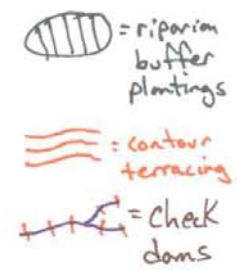 = riparian
buffer
plantings
= contour
terracing
= Check
dams